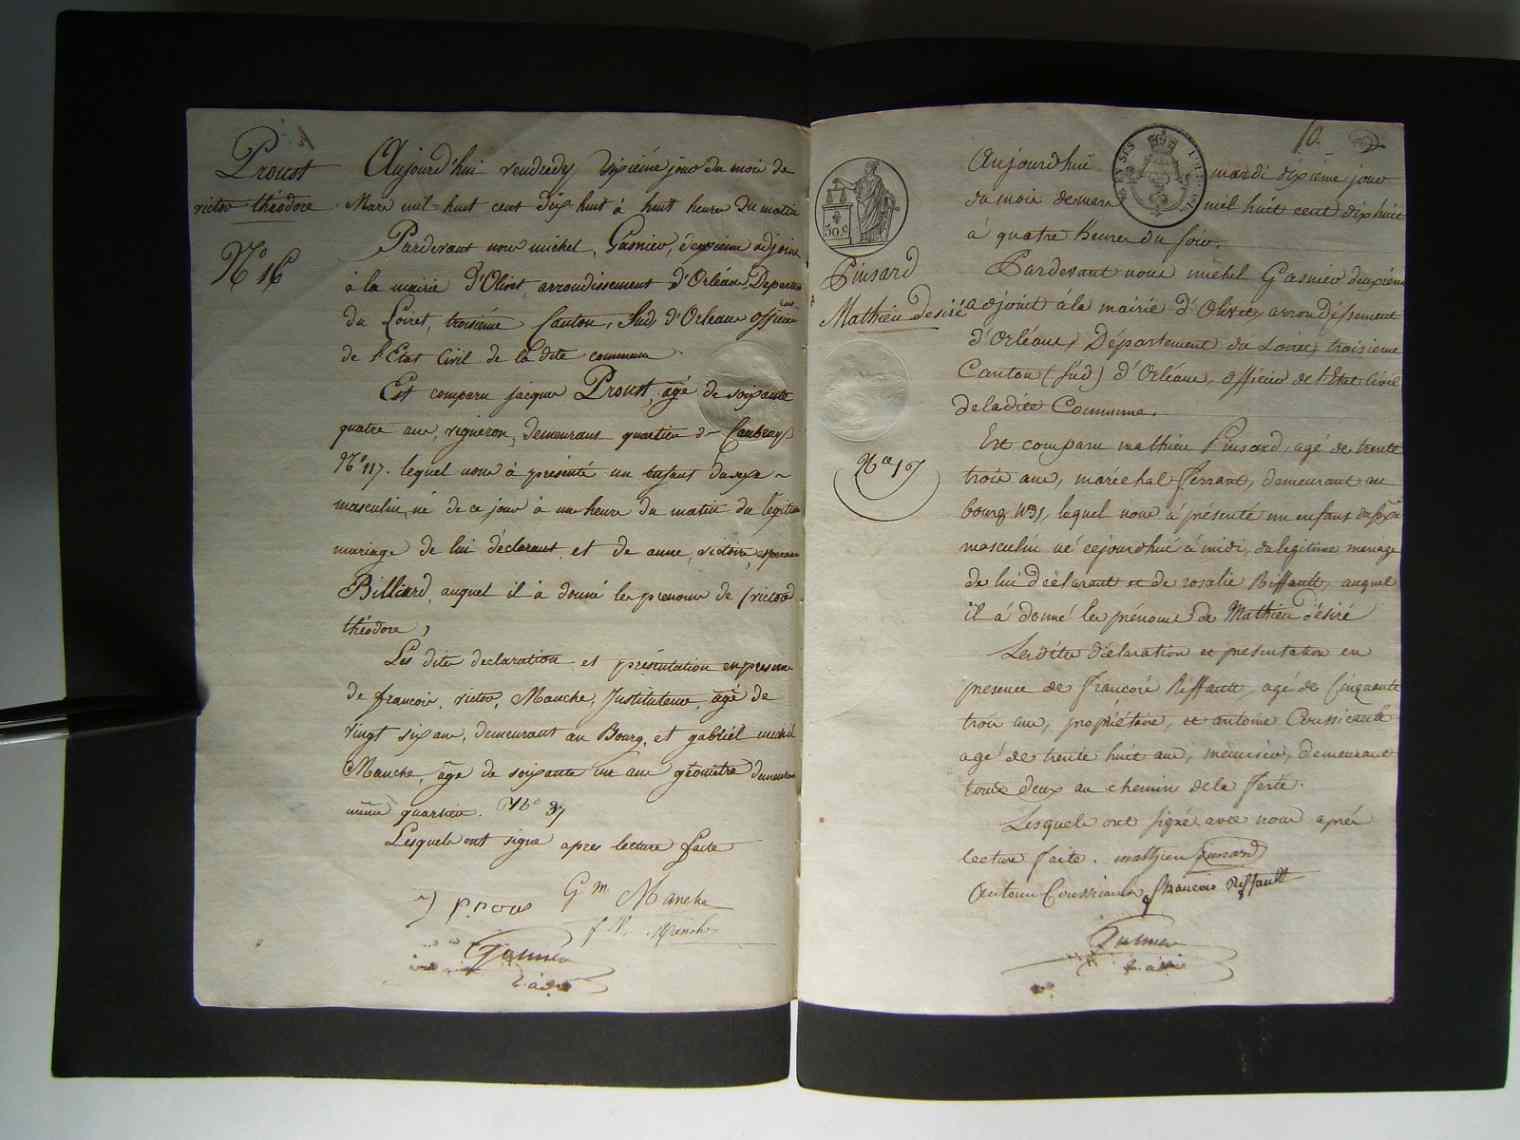 Proust
victor théodore
N.° 16
Aujourd'hui vendredy dixième jour du mois de
Mars mil-huit cent dix huit à huit heures du matin
Pardevant nous michel Gasnier, deuxième adjoint
à la mairie d'Olivet arrondissement d'Orléans, Departement
du Loiret, troisième Canton, Sud d'Orléans officier
de l'Etat Civil de la dite commune
Est comparu jacques Proust, agé de soixante
quatre ans, vigneron, demeurant quartier de Caubray
N.° 117. lequel nous à présenté un enfant du sexe
masculin, né de ce jour à une heure du matin du légitime
mariage de lui déclarant et de anne, victoire,
Billiard, auquel il à donné les prenoms de victor
théodore,
Les dites declaration et présentation en presence
de françois, victor, Manche, Instituteur, agé de
vingt six ans, demeurant au Bourg, et gabriël michel
Manche, âgé de soixante un ans géomètre demeurant
même quartier. N.° 37
Lesquels ont signé après lecture faite
J p.rous G m Manche
f. V. Manche
Gasnier
2. adj
10.
30.c
Pinsard
Mathieu desiré
N.° 17
Aujourdhui mardi dixième jour
du mois de mars mil huit cent dix huit
à quatre heures du soir.
Pardevant nous michel Gasnier deuxième
adjoint à la mairie d'Olivet, arrondissement
d'Orléans, Département du Loiret, troisieme
Canton (Sud) d'Orléans, officier de l'Etat Civil
de la dite Commune.
Est comparu mathieu Pinsard, agé de trente
trois ans, maréchal ferrant, demeurant au
bourg N.° 31, lequel nous à présenté un enfant du sexe
masculin né cejourdhui à midi, du legitime mariage
de lui déclarant et de rosalie Riffault, auquel
il à donné les prénoms de Mathieu désiré
Lesdites déclaration et presentation en
presence de françois Riffault, agé de cinquante
trois ans, propriétaire, et antoine Coussicault
agé de trente huit ans, menuisier, demeurant
tous deux au chemin de la ferté.
Lesquels ont signé avec nous après
lecture faite. mathieu Pinsard
Antoine françois Riffault
Gasnier
2. adj